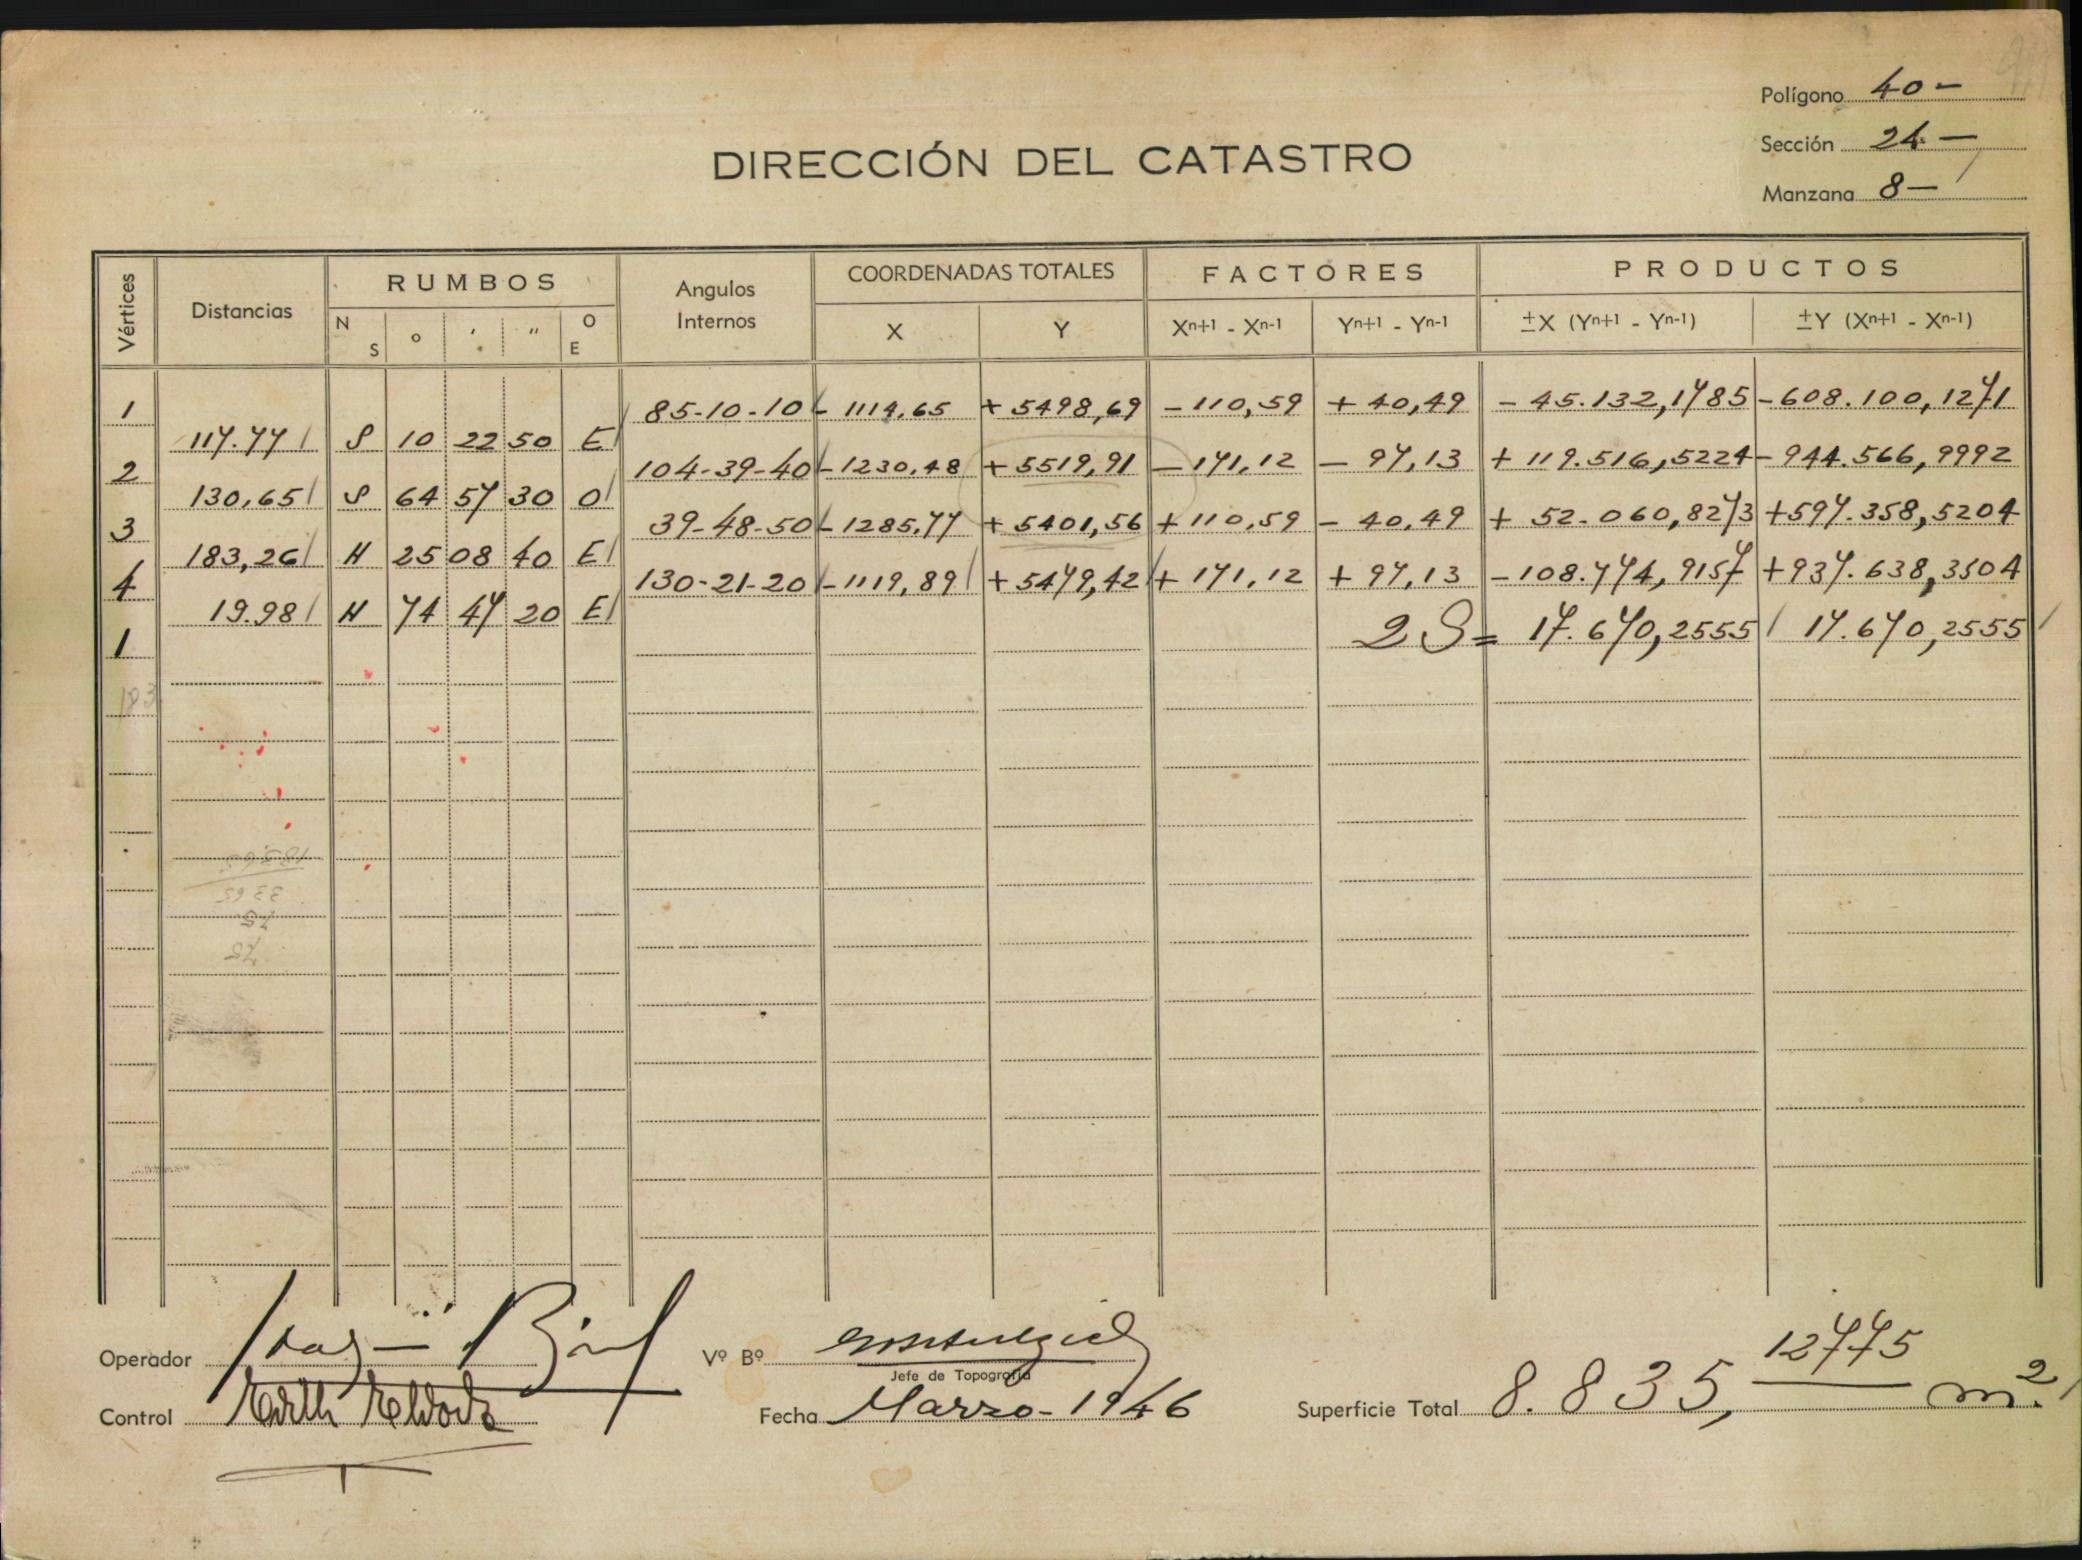 Polígono 40 –
Sección 24 –
Manzana 8 –
DIRECCIÓN DEL CATASTRO
Vértices Distancias RUMBOS Angulos Internos COORDENADAS TOTALES FACTORES PRODUCTOS
N S ° ' " O E X Y Xn+1 - Xn-1 Yn+1 - Yn-1 ±X (Yn+1 - Yn-1) ±Y (Xn+1 - Xn-1)
1 85-10-10 - 1114,65 + 5498,69 - 110,59 + 40,49 - 45.132,1785 - 608.100,1271
117.77 S 10 22 50 E
2 104-39-40 - 1230,48 + 5519,91 - 171,12 - 97,13 + 119.516,5224 - 944.566,9992
130,65 S 64 57 30 O
3 39-48-50 - 1285,77 + 5401,56 + 110,59 - 40,49 + 52.060,8273 + 597.358,5204
183,26 N 25 08 40 E
4 130-21-20 - 1119,89 + 5479,42 + 171,12 + 97,13 - 108.774,9157 + 937.638,3504
19.98 N 74 47 20 E
1 2S = 17.670,2555 17.670,2555
Operador
Vº Bº
Jefe de Topografía
Control
Fecha Marzo - 1946
Superficie Total 8.835,12775 m²